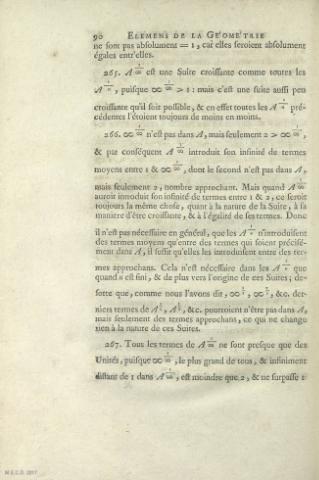 90 ELEMENS DE LA GEOMETRIE
ne sont pas absolument = 1, car elles seroient absolument
égales entr'elles.
265. A^{1/∞} est une Suite croissante comme toutes les
A^{1/n}, puisque ∞^{1/∞} > 1 : mais c'est une suite aussi peu
croissante qu'il soit possible, & en effet toutes les A^{1/n} pré-
cédentes l'étoient toujours de moins en moins.
266. ∞^{1/∞} n'est pas dans A, mais seulement 2 > ∞^{1/∞},
& par conséquent A^{1/∞} introduit son infinité de termes
moyens entre 1 & ∞^{1/∞}, dont le second n'est pas dans A,
mais seulement 2, nombre approchant. Mais quand A^{1/∞}
auroit introduit son infinité de termes entre 1 & 2, ce seroit
toujours la même chose, quant à la nature de la Suite, à sa
maniére d'être croissante, & à l'égalité de ses termes. Donc
il n'est pas nécessaire en général, que les A^{1/n} n'introduisent
des termes moyens qu'entre des termes qui soient précisé-
ment dans A, il suffit qu'elles les introduisent entre des ter-
mes approchans. Cela n'est nécessaire dans les A^{1/n} que
quand n est fini, & de plus vers l'origine de ces Suites ; de-
sorte que, comme nous l'avons dit, &c. der-
niers termes de &c. pourroient n'être pas dans A,
mais seulement des termes approchans, ce qui ne change
rien à la nature de ces Suites.
267. Tous les termes de A^{1/∞} ne sont presque que des
Unités, puisque ∞^{1/∞}, le plus grand de tous, & infiniment
distant de 1 dans A^{1/∞}, est moindre que 2, & ne surpasse 1